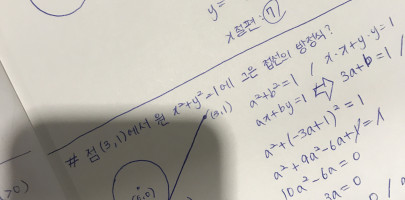 y=
x절편: 7
# 점(3,1)에서 원 x²+y²=1에 그은 접선의 방정식?
(3,1)
a²+b²=1 / x·x+y·y=1
ax+by=1 ⇨ 3a+b=1 /
a²+(-3a+1)²=1
a²+9a²-6a+1=1
10a²-6a=0
3a=0
(0,0)
>0)